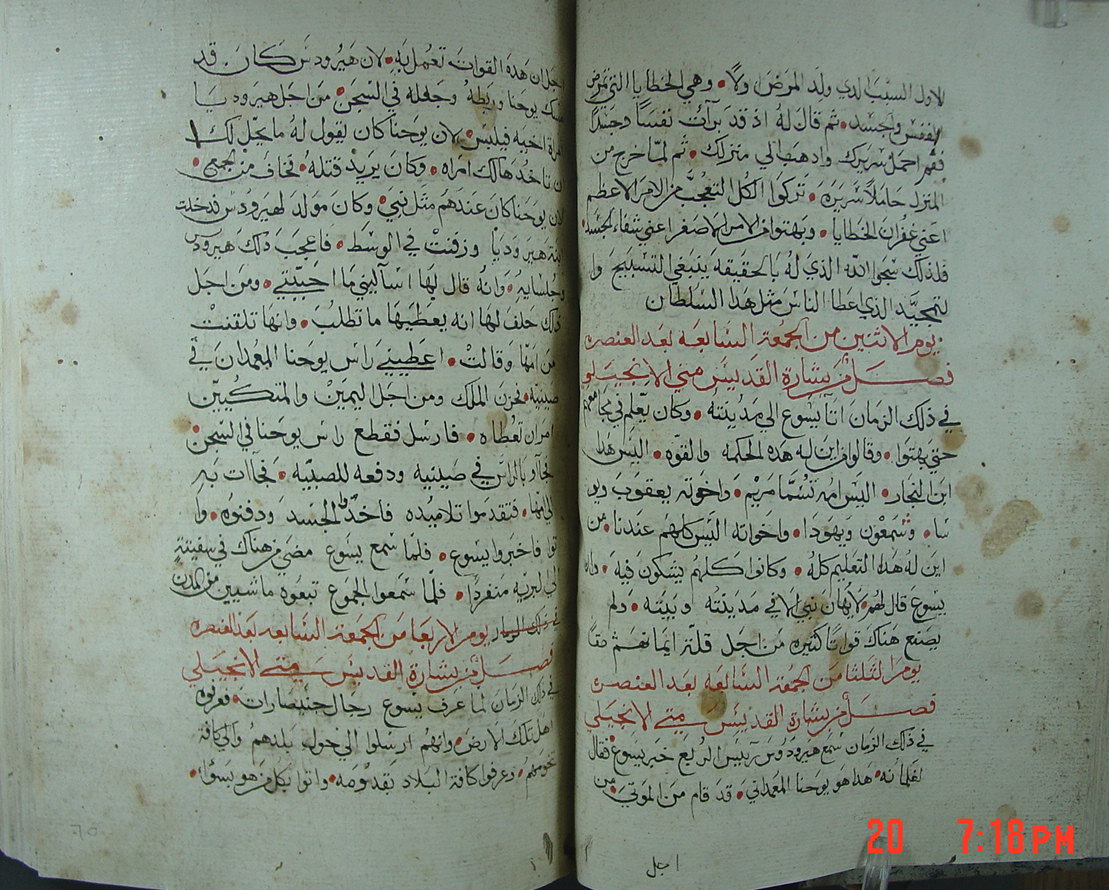 الاول السبب الدي ولد المرض ولاً • وهي الخطايا التي تمرض
النفس والجسد • ثم قال له اذ قد برأت نفساً وجسداً
فقم احمل سريرك وادهب الي منزلك • ثم لما خرج من
المنزل حاملاً سريره • تركوا الكل التعجب من الامر الاعظم
اعني غفران الخطايا • وبهتوا من الامر الاصغر اعني شفاء الجسد •
فلذلك سبحوا الله الذي له بالحقيقه ينبغي التسبيح وا
لتمجيد الدي اعطا الناس مثل هدا السلطان
يوم الاثنين من الجمعة السابعه بعد العنصره
فصل من بشارة القديس متي الانجيلي
في ذلك الزمان اتا يسوع الي مدينته • وكان يعلم في مجامعهم
حتي بهتوا • وقالوا من اين له هده الحكمه والقوه • اليس هدا
ابن النجار • اليس امه تسما مريم • واخوته يعقوب ويو
سا • وشمعون ويهودا • واخواته اليس كلهم عندنا • من
اين له هده التعليم كله • وكانوا كلهم يشكون فيه • وان
يسوع قال لهم • لا يهان نبي الا في مدينته وبيته • ولم
يصنع هناك قواتاً كثيره من اجل قلة ايمانهم
يوم الثلثا من الجمعة السابعه بعد العنصره
فصل من بشارة القديس متي الانجيلي
في ذلك الزمان سمع هيرودس رييس الربع خبر يسوع • فقال
لغلمانه • هدا هو يوحنا المعمداني • قد قام من الموتي • من
اجل
اجل ان هده القوات تعمل به • لان هيرودس كان قد
مسك يوحنا وربطه وجعله في السجن • من اجل هيروديا
امراة اخيه فيلبس • لان يوحنا كان يقول له ما يحل لك ا
ن تاخد هالك امراه • وكان يريد قتله • فخاف من الجميع •
لان يوحنا كان عندهم مثل نبي • وكان مولد لهيرودس فدخلت
ابنة هيروديا ورقنت في الوسط • فاعجب ذلك هيرودس
وجلسايه • وانه قال لها اساليني ما احببتي • ومن اجل
ذلك حلف لها انه يعطيها ما تطلب • وانها تلقنت
من امها وقالت • اعطيني راس يوحنا المعمدان في
صينية • فحزن الملك ومن اجل اليمين والمتكيين
امر ان تعطاه • فارسل فقطع راس يوحنا في السجن •
فجاوا بالراس في صينيه ودفعه للصبيه • فجاات به
الي امها • فتقدموا تلاميده فاخدوا الجسد ودفنوه • وا
توا فاخبروا يسوع • فلما سمع يسوع مضي من هناك في سفينة
الي البريه منفرداً • فلما سمعوا الجموع تبعوه ماشيين من المدن
يوم الاربعا من الجمعة السابعه بعد العنصره
فصل من بشارة القديس متي الانجيلي
في ذلك الزمان لما عرف يسوع رجال جنيصارات • فعرفوه
اهل تلك الارض • وانهم ارسلوا الي حول بلدهم والي كافة
تخومهم • وعرفوا كافة البلاد بقدومه • واتوا بكل من هو بسوا •
20 7:18PM